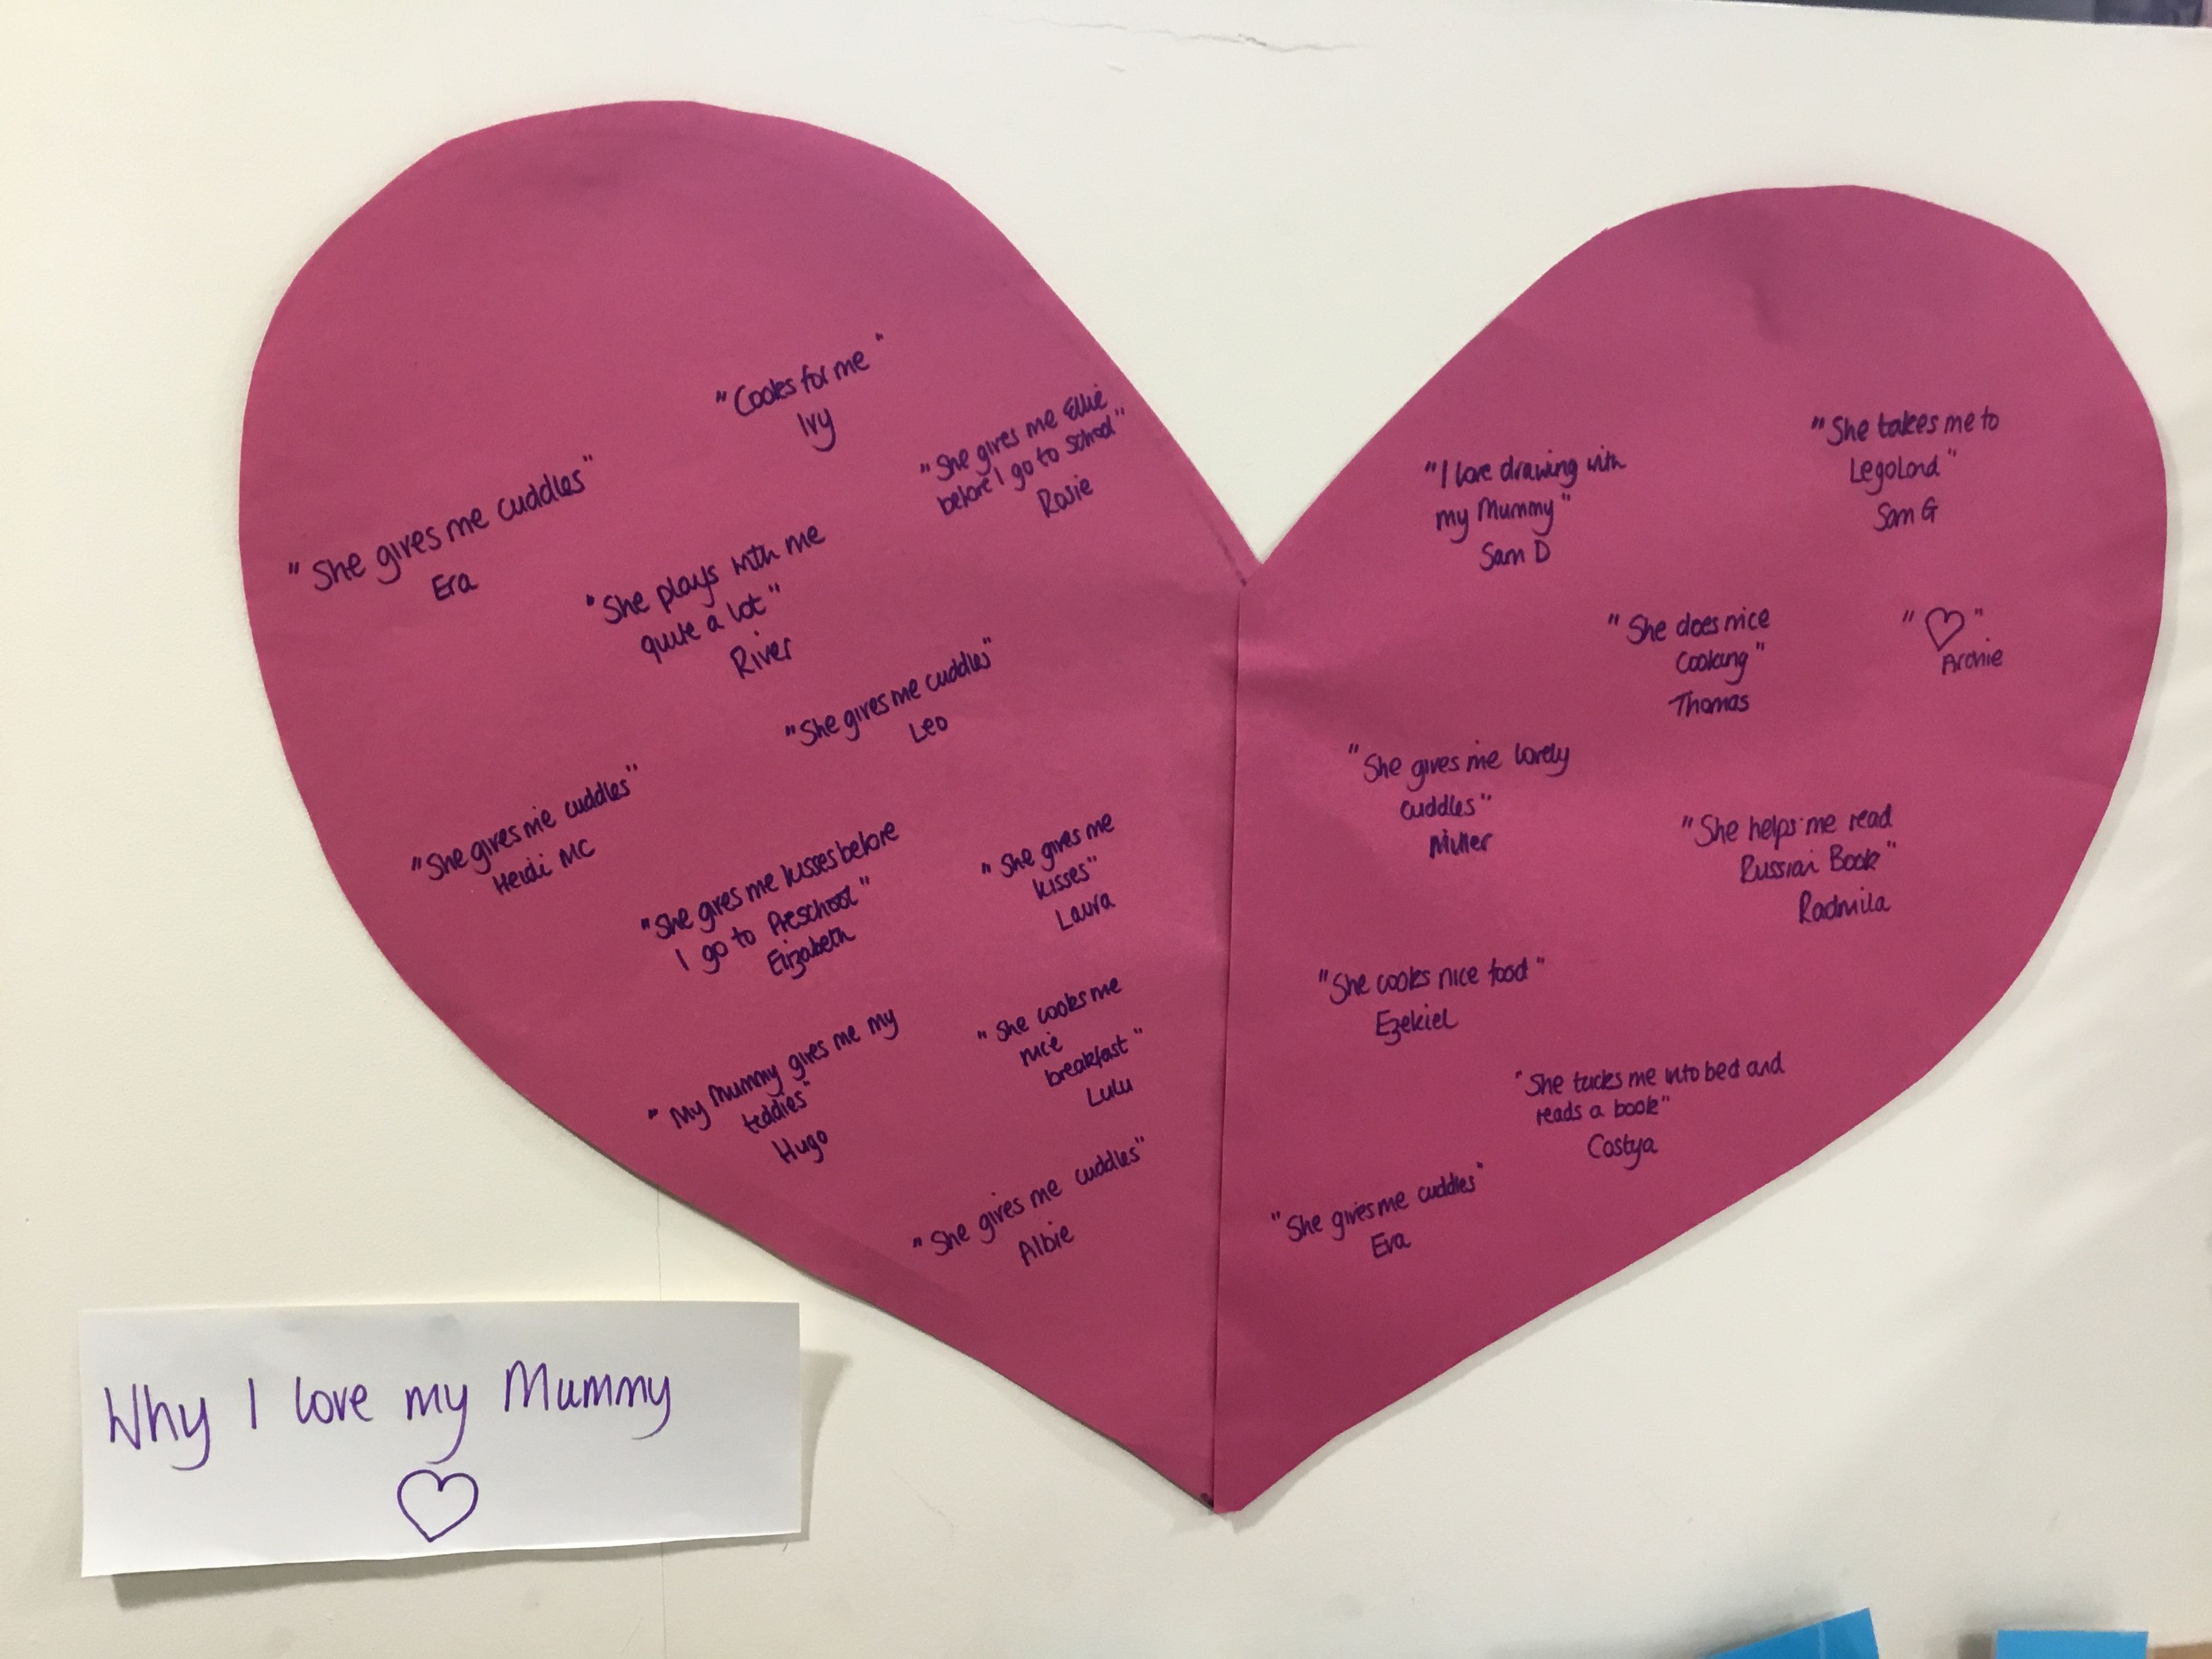 "Cooks for me"
Ivy
"She gives me Ellie
before I go to school"
Rosie
"She gives me cuddles"
Era
"She plays with me
quite a lot"
River
"She gives me cuddles"
Leo
"She gives me cuddles"
Heidi MC
"She gives me kisses before
I go to Preschool"
Elizabeth
"She gives me
kisses"
Laura
"My Mummy gives me my
teddies"
Hugo
"She cooks me
nice
breakfast"
Lulu
"She gives me cuddles"
Albie
"I love drawing with
my Mummy"
Sam D
"She takes me to
LegoLand"
Sam G
"She does nice
Cooking"
Thomas
"♡"
Archie
"She gives me lovely
cuddles"
Miller
"She helps me read
Russian Book"
Radmila
"She cooks nice food"
Ezekiel
"She tucks me into bed and
reads a book"
Costya
"She gives me cuddles"
Eva
Why I love my Mummy
♡